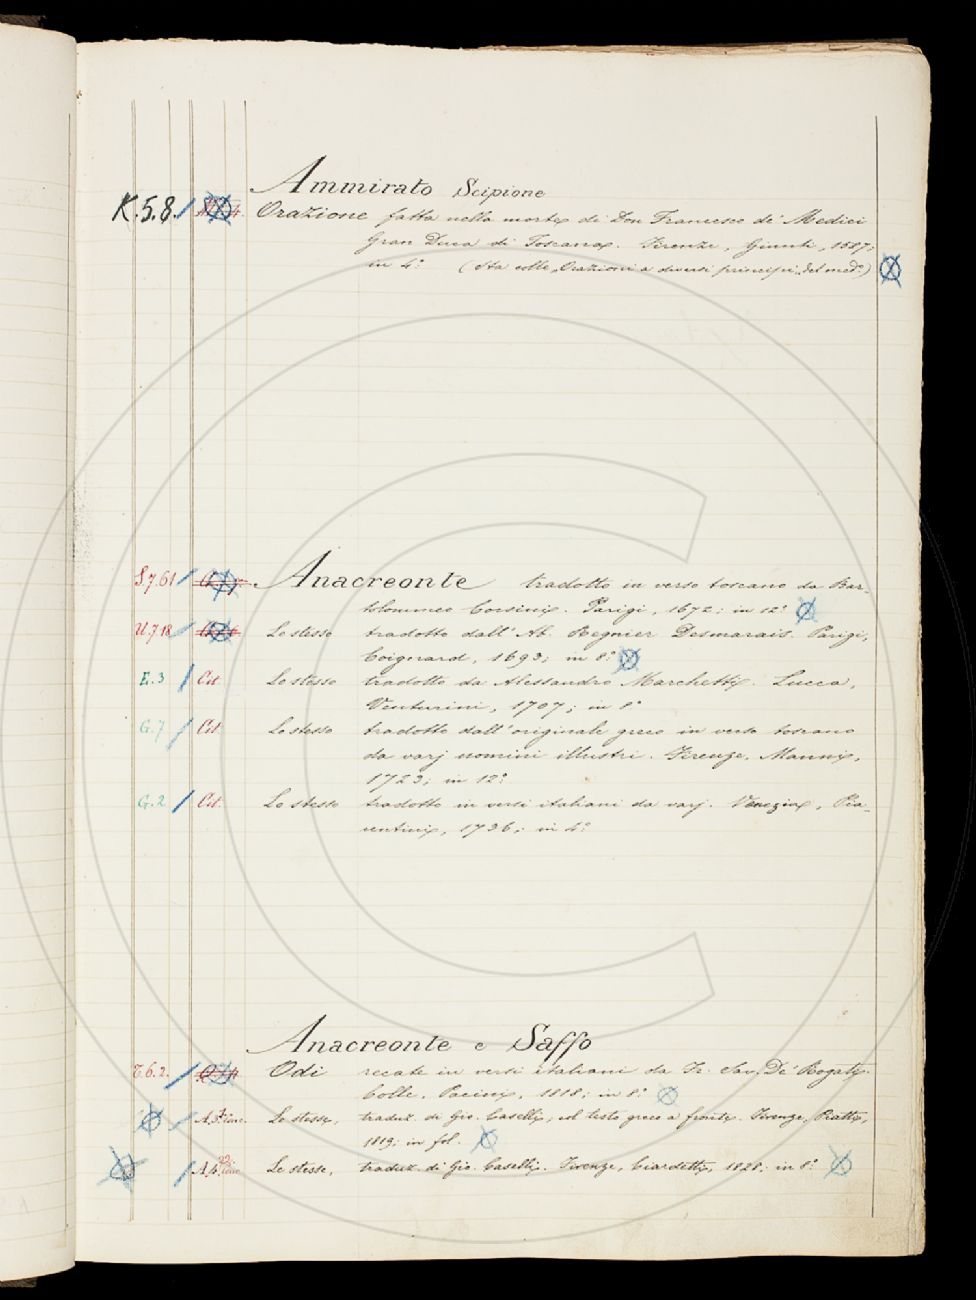 Ammirato Scipione
K.5.8. Orazione fatta nella morte di Don Francesco de' Medici
Gran Duca di Toscana. Firenze, Giunti, 1587;
in 4.º (Sta colle „Orazioni a diversi principi„ del med.º)
S.7.61 Anacreonte tradotto in verso toscano da Bar-
tolommeo Corsini. Parigi, 1672; in 12.º
U.7.18 Lo stesso tradotto dall'Ab. Regnier Desmarais. Parigi,
Coignard, 1693; in 8.º
E.3 Cit. Lo stesso tradotto da Alessandro Marchetti. Lucca,
Venturini, 1707; in 8º
G.7 Cit. Lo stesso tradotto dall'originale greco in verso toscano
da varj uomini illustri. Firenze, Manni,
1723; in 12.º
G.2. Cit. Lo stesso tradotto in versi italiani da varj. Venezia, Pia-
centini, 1736; in 4.º
Anacreonte e Saffo
6.2. Odi recate in versi italiani da Fr. Sav. De' Rogati.
Colle, Pacini, 1818; in 8.º
Le stesse, traduz. di Gio. Caselli, col testo greco a fronte. Firenze, Piatti,
1819; in fol.
Le stesse, traduz. di Gio. Caselli. Firenze, Ciardetti, 1828; in 8.º